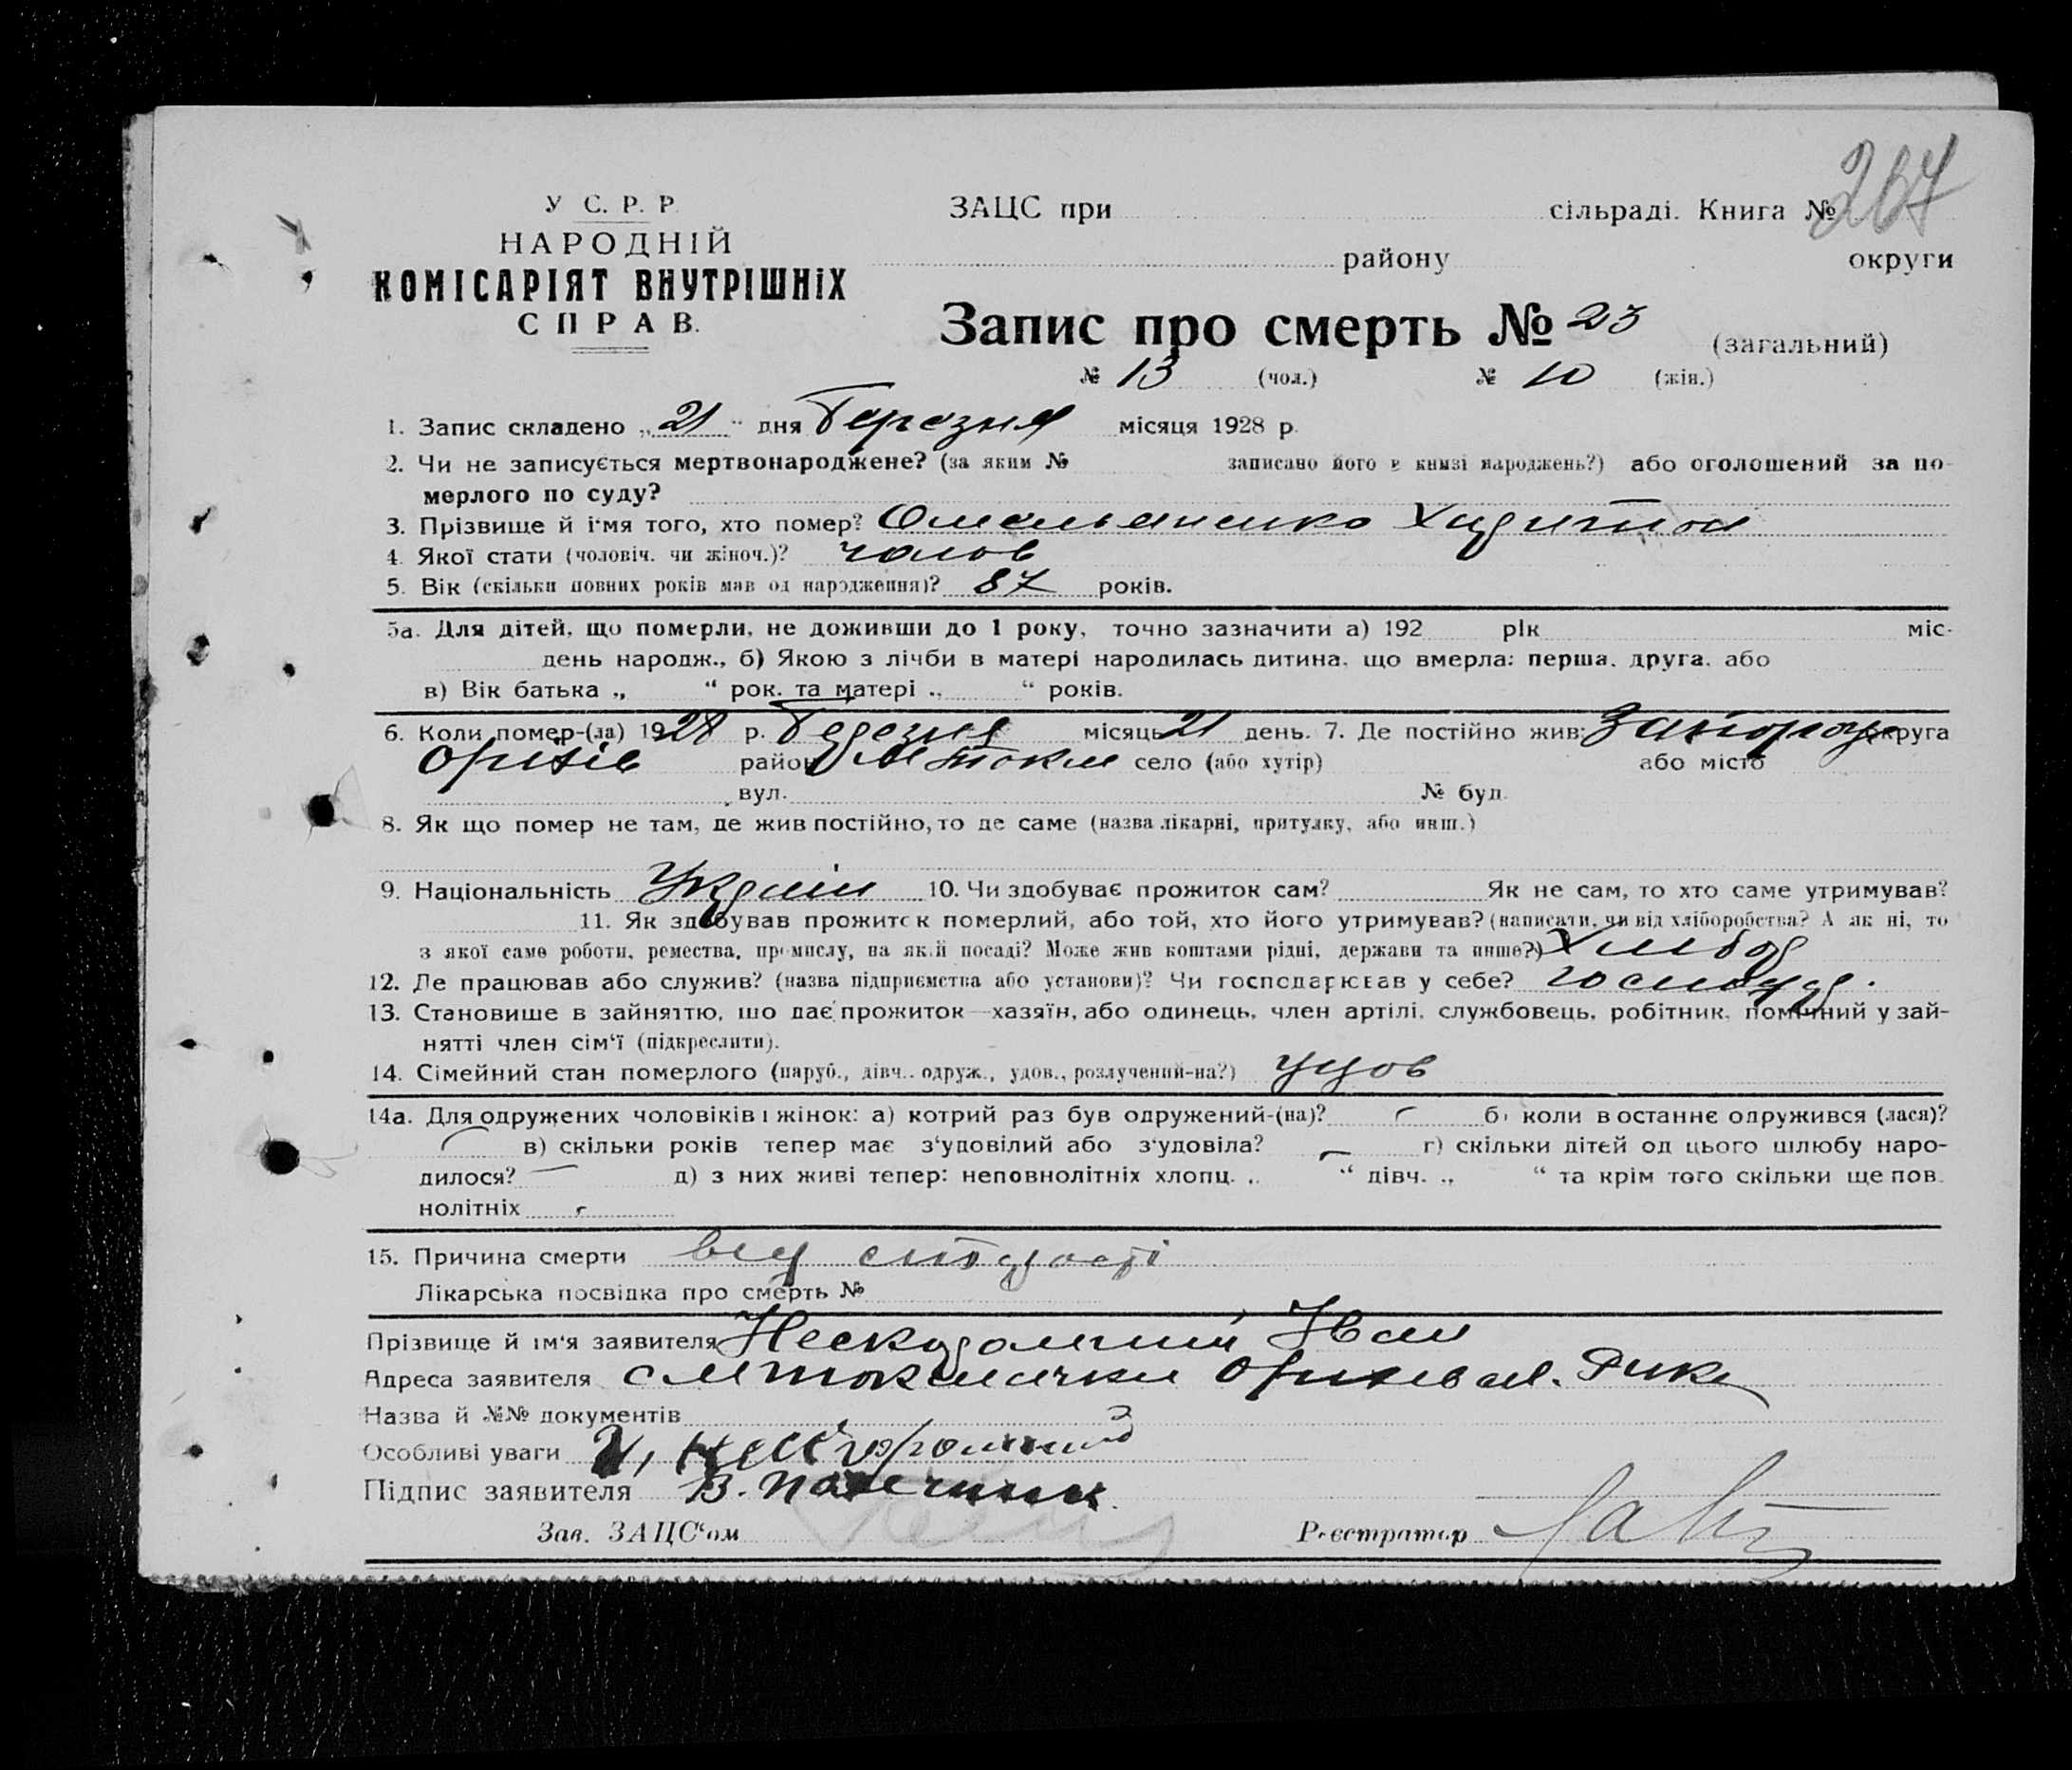 267
У С. Р. Р.
НАРОДНІЙ
КОМІСАРІЯТ ВНУТРІШНІХ
СПРАВ.
ЗАЦС при сільраді. Книга №
району округи
Запис про смерть № 23 (загальний)
№ 13 (чол.) № 10 (жін.)
1. Запис складено „ 21 “ дня Березня місяця 1928 р.
2. Чи не записується мертвонароджене? (за яким № записано його в книзі народжень?) або оголошений за по-
мерлого по суду?
3. Прізвище й ім'я того, хто помер? Омельяненко Харитон
4. Якої стати (чоловіч. чи жіноч.)? чолов
5. Вік (скільки повних років мав од народження)? 87 років.
5а. Для дітей, що померли, не доживши до 1 року, точно зазначити а) 192 рік міс.
день народж., б) Якою з лічби в матері народилась дитина, що вмерла: перша, друга, або
в) Вік батька „ “ рок. та матері „ “ років.
6. Коли помер-(ла) 1928 р. Березня місяць 21 день. 7. Де постійно жив: Запороз округа
Оріхів район М Токм село (або хутір) або місто
вул. № буд.
8. Як що помер не там, де жив постійно, то де саме (назва лікарні, притулку, або инш.)
9. Національність Україн 10. Чи здобуває прожиток сам? Як не сам, то хто саме утримував?
11. Як здобував прожиток померлий, або той, хто його утримував? (написати, чи від хліборобства? А як ні, то
з якої саме роботи, ремества, промислу, на якій посаді? Може жив коштами рідні, держави та инше?) Хлібор
12. Де працював або служив? (назва підприємства або установи)? Чи господарював у себе? господар.
13. Становище в зайняттю, що дає прожиток—хазяїн, або одинець, член артілі, службовець, робітник, помічний у зай-
нятті член сім'ї (підкреслити).
14. Сімейний стан померлого (паруб., дівч., одруж., удов., розлучений-на?) удов
14а. Для одружених чоловіків і жінок: а) котрий раз був одружений-(на)? б) коли востаннє одружився (лася)?
в) скільки років тепер має з'удовілий або з'удовіла? г) скільки дітей од цього шлюбу наро-
дилося? д) з них живі тепер: неповнолітніх хлопц. „ “ дівч. „ “ та крім того скільки ще пов.
нолітніх
15. Причина смерти від старості
Лікарська посвідка про смерть №
Прізвище й ім'я заявителя Нескоромний Іван
Адреса заявителя с М Токмачки Оріхівськ.
Назва й №№ документів
Особливі уваги
Підпис заявителя
Зав. ЗАЦС'ом Реєстратор